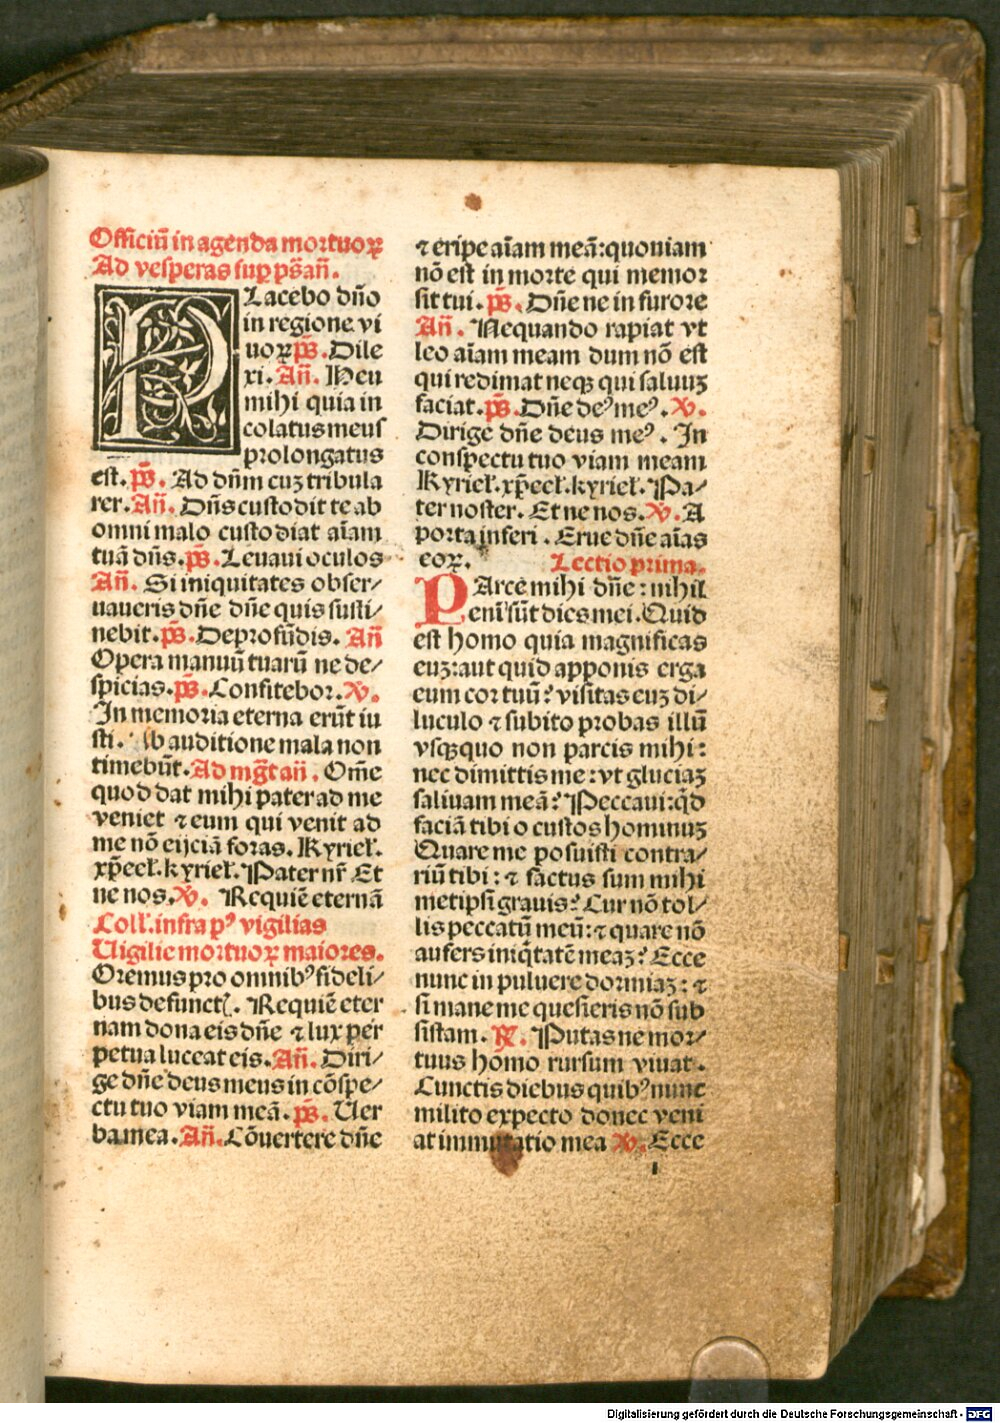 Officiū in agenda mortuoꝝ
Ad vesperas suꝑ pŝ añ.
PLacebo dño
in regione vi
uoꝝ pš. Dile
xi. Añ. Heu
mihi quia in
colatus meus
prolongatus
est. pš. Ad dñm cuȝ tribula
rer. Añ. Dñs custodit te ab
omni malo custodiat aīam
tuā dñs. pš. Leuaui oculos
Añ. Si iniquitates obser/
uaueris dñe dñe quis susti/
nebit. pš. De profūdis. Añ
Opera manuū tuarū ne de/
spicias. pš. Confitebor. ℣.
In memoria eterna erūt iu
sti. Ab auditione mala non
timebūt. Ad mg̃t añ. Om̄e
quod dat mihi pater ad me
veniet ⁊ eum qui venit ad
me nō eijciā foras. Kyriel̕.
xp̄eel̕. kyriel̕. Pater nr̄ Et
ne nos. ℣. Requiē eternā
Coll̕. infra pꝰ vigilias
Uigilie mortuoꝝ maiores.
Oremus pro omnibꝰ fideli/
bus defunct(. Requiē eter
nam dona eis dñe ⁊ lux per
petua luceat eis. Añ. Diri/
ge dñe deus meus in cōspe/
ctu tuo viam meā. pš. Uer
ba mea. Añ. Cōuertere dñe
⁊ eripe aīam meā: quoniam
nō est in morte qui memor
sit tui. pš. Dñe ne in furore
Añ. Nequando rapiat vt
leo aīam meam dum nō est
qui redimat neqꝫ qui saluuȝ
faciat. pš. Dñe deꝰ meꝰ. ℣.
Dirige dñe deus meꝰ. In
conspectu tuo viam meam
Kyriel̕. xp̄eel̕. kyriel̕. Pa/
ter noster. Et ne nos. ℣. A
porta inferi. Erue dñe aīas
eoꝝ. Lectio prima.
PArce mihi dñe: nihil
eni sūt dies mei. Quid
est homo quia magnificas
euȝ: aut quid apponis erga
eum cor tuū? visitas euȝ di/
luculo ⁊ subito probas illū
vsqꝫquo non parcis mihi:
nec dimittis me: vt gluciaȝ
saliuam meā? Peccaui: qd̄
faciā tibi o custos hominuȝ
Quare me posuisti contra/
riū tibi: ⁊ factus sum mihi
metipsi grauis? Cur nō tol/
lis peccatū meū: ⁊ quare nō
aufers iniq̇tatē meaȝ? Ecce
nunc in puluere dormiaȝ: ⁊
si mane me quesieris nō sub
sistam. ℟. Putasne mor/
tuus homo rursum viuat.
Cunctis diebus quibꝰ nunc
milito expecto donec veni
at immutatio mea ℣. Ecce
ı
Digitalisierung gefördert durch die Deutsche Forschungsgemeinschaft - DFG